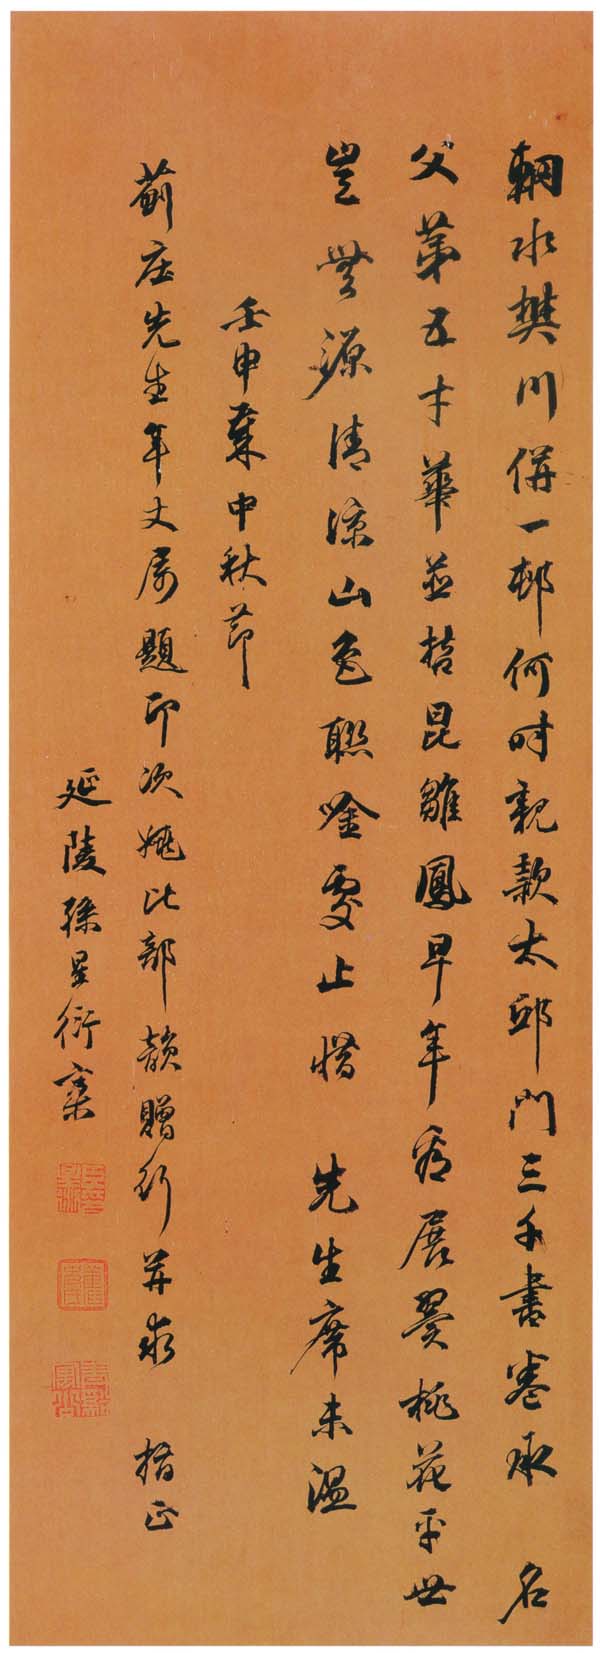 輞水樊川併一邨何時親款太邱門三千書卷承 名
父第五才華並哲昆雛鳳早年看展翼桃花平世
豈無源清涼山色聯唫處止惜 先生席未溫
壬申葉中秋節
薊庄先生年丈屬題即次姚比部韻贈行并求 揩正
延陵孫星衍稾